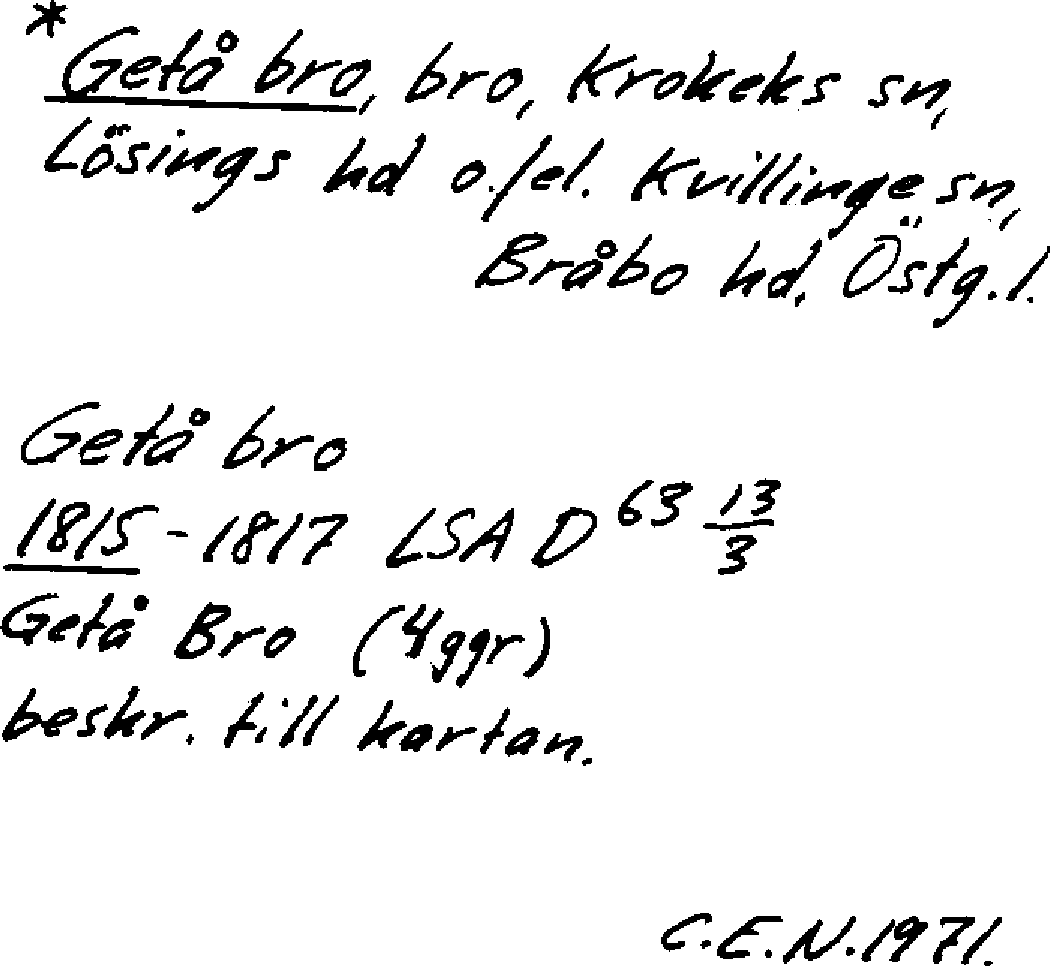 * Getå bro, bro, Krokeks sn,
Lösings hd o./el. Kvillinge sn,
Bråbo hd, Östg.l.
Getå bro
1815-1817 LSA D 63 13/3
Getå Bro (4ggr)
beskr. till kartan.
C.E.N.1971.